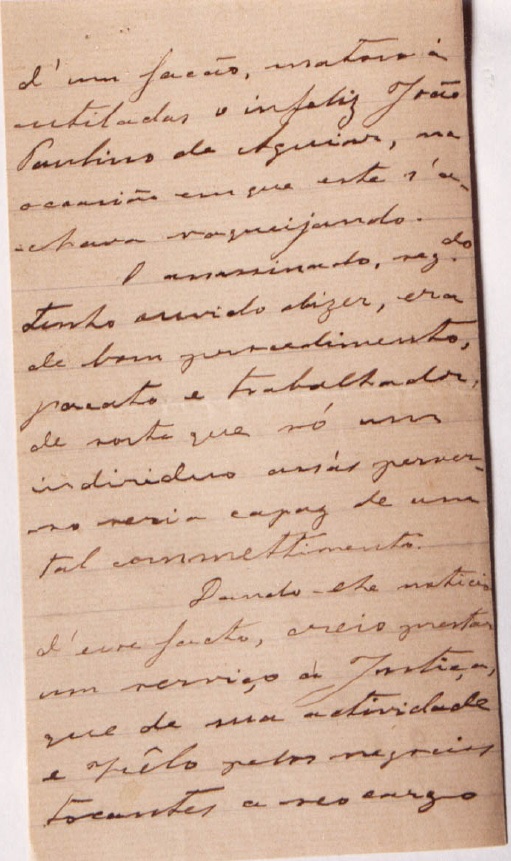 d'um facão, matou á
cutiladas o infeliz João
Paulino de Aguiar, na
occasião em que este s'a-
chava vaqueijando.
O assassinado, seg.do
tenho ouvido dizer, era
de bom procedimento,
pacato e trabalhador,
de sorte que só um
individuo assás perver-
so seria capaz de um
tal commettimento.
Dando-lhe noticia
d'esse facto, creio prestar
um serviço á Justiça,
que de sua actividade
e zêlo pelos negocios
tocantes a seo cargo